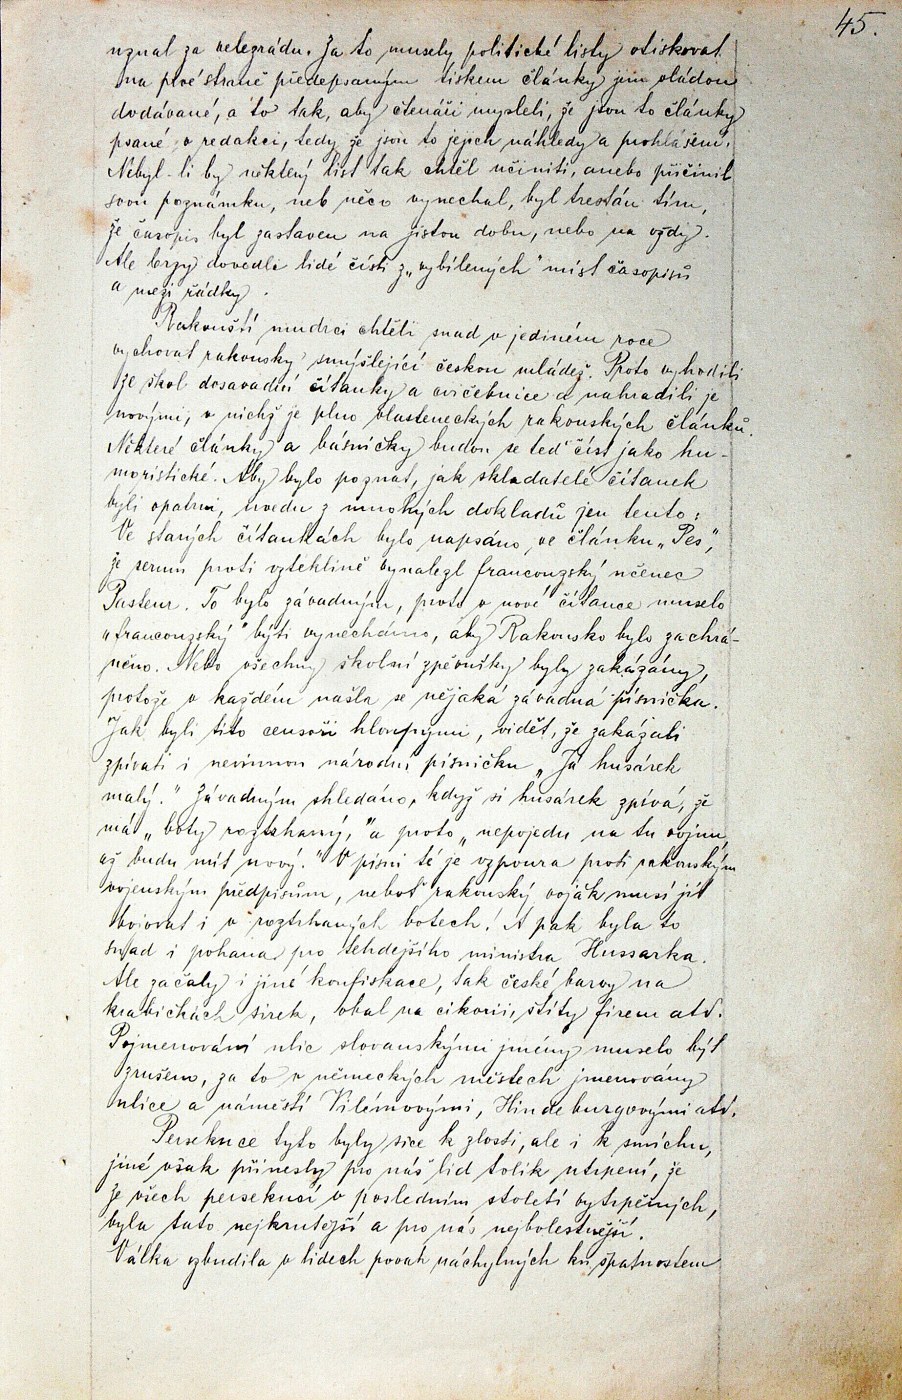 45.
uznal za velezrádu. Za to musely politické listy otiskovat
na prvé straně předepsaným tiskem články jim vládou
dodávané, a to tak, aby čtenáři mysleli, že jsou to články
psané v redakci, tedy že jsou to jejich náhledy a prohlášení.
Nebyl-li by některý list tak chtěl učiniti, anebo přičinil
svou poznámku, neb něco vynechal, byl trestán tím,
že časopis byl zastaven na jistou dobu, nebo na vždy.
Ale brzy dovedli lidé čísti z „vybílených" míst časopisů
a mezi řádky.
Rakouští mudrci chtěli snad v jediném roce
vychovat rakousky smýšlející českou mládež. Proto vyhodili
ze škol dosavadní čítanky a cvičebnice a nahradili je
novými, v nichž je plno vlasteneckých rakouských článků.
Některé články a básničky budou se teď číst jako hu-
moristické. Aby bylo poznat, jak skladatelé čítanek
byli opatrni, uvedu z mnohých dokladů jen tento:
Ve starých čítankách bylo napsáno ve článku „Pes",
že serum proti vzteklině vynalezl francouzský učenec
Pasteur. To bylo závadným, proto v nové čítance muselo
„francouzský" býti vynecháno, aby Rakousko bylo zachrá-
něno. Nebo všechny školní zpěvníky byly zakázány,
protože v každém našla se nějaká závadná písnička.
Jak byli tito censoři hloupými, vidět, že zakázali
zpívati i nevinnou národní písničku „Já husárek
malý." Závadným shledáno, když si husárek zpívá, že
má „boty roztrhaný," a proto „nepojedu na tu vojnu,
až budu mít nový." V písni té je vzpoura proti rakouským
vojenským předpisům, neboť rakouský voják musí jít
bojovat i v roztrhaných botech! A pak byla to
snad i pohana pro tehdejšího ministra Hussarka.
Ale začaly i jiné konfiskace, tak české barvy na
krabičkách sirek, obal na cikorii, štíty firem atd.
Pojmenování ulic slovanskými jmény muselo být
zrušeno, za to v německých městech jmenovány
ulice a náměstí Vilémovými, Hindeburgovými atd.
Persekuce tyto byly sice k zlosti, ale i k smíchu,
jiné však přinesly pro náš lid tolik utrpení, že
ze všech persekucí v posledním století vytrpěných,
byla tato nejkrutější a pro nás nejbolestnější.
Válka vzbudila v lidech povah náchylných ku špatnostem